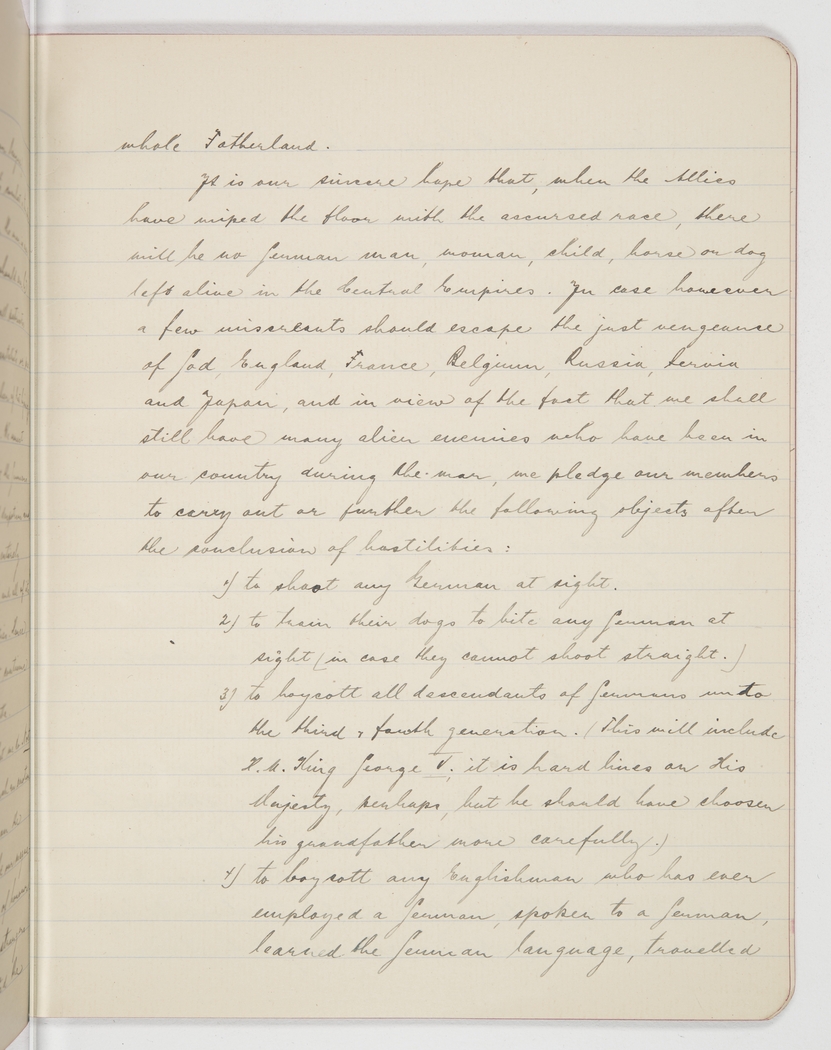 whole Fatherland.
It is our sincere hope that, when the Allies
have wiped the floor with the ascursed race, there
will be no German man, woman, child, horse or dog
left alive in the Central Empires. In case however
a few miscreants should escape the just vengeance
of God, England, France, Belgium, Russia, Servia
and Japan, and in view of the fact that we shall
still have many alien enemies who have been in
our country during the war, we pledge our members
to carry out or further the following objects after
the conclusion of hostilities:
1) to shoot any German at sight.
2) to train their dogs to bite any German at
sight (in case they cannot shoot straight.)
3) to boycott all descendants of Germans unto
the third & fourth generation. (This will include
H.M. King George V; it is hard lines on His
Majesty, perhaps, but he should have choosen
his grandfather more carefully.)
4) to boycott any Englishman who has ever
employed a German, spoken to a German,
learned the German language, travelled